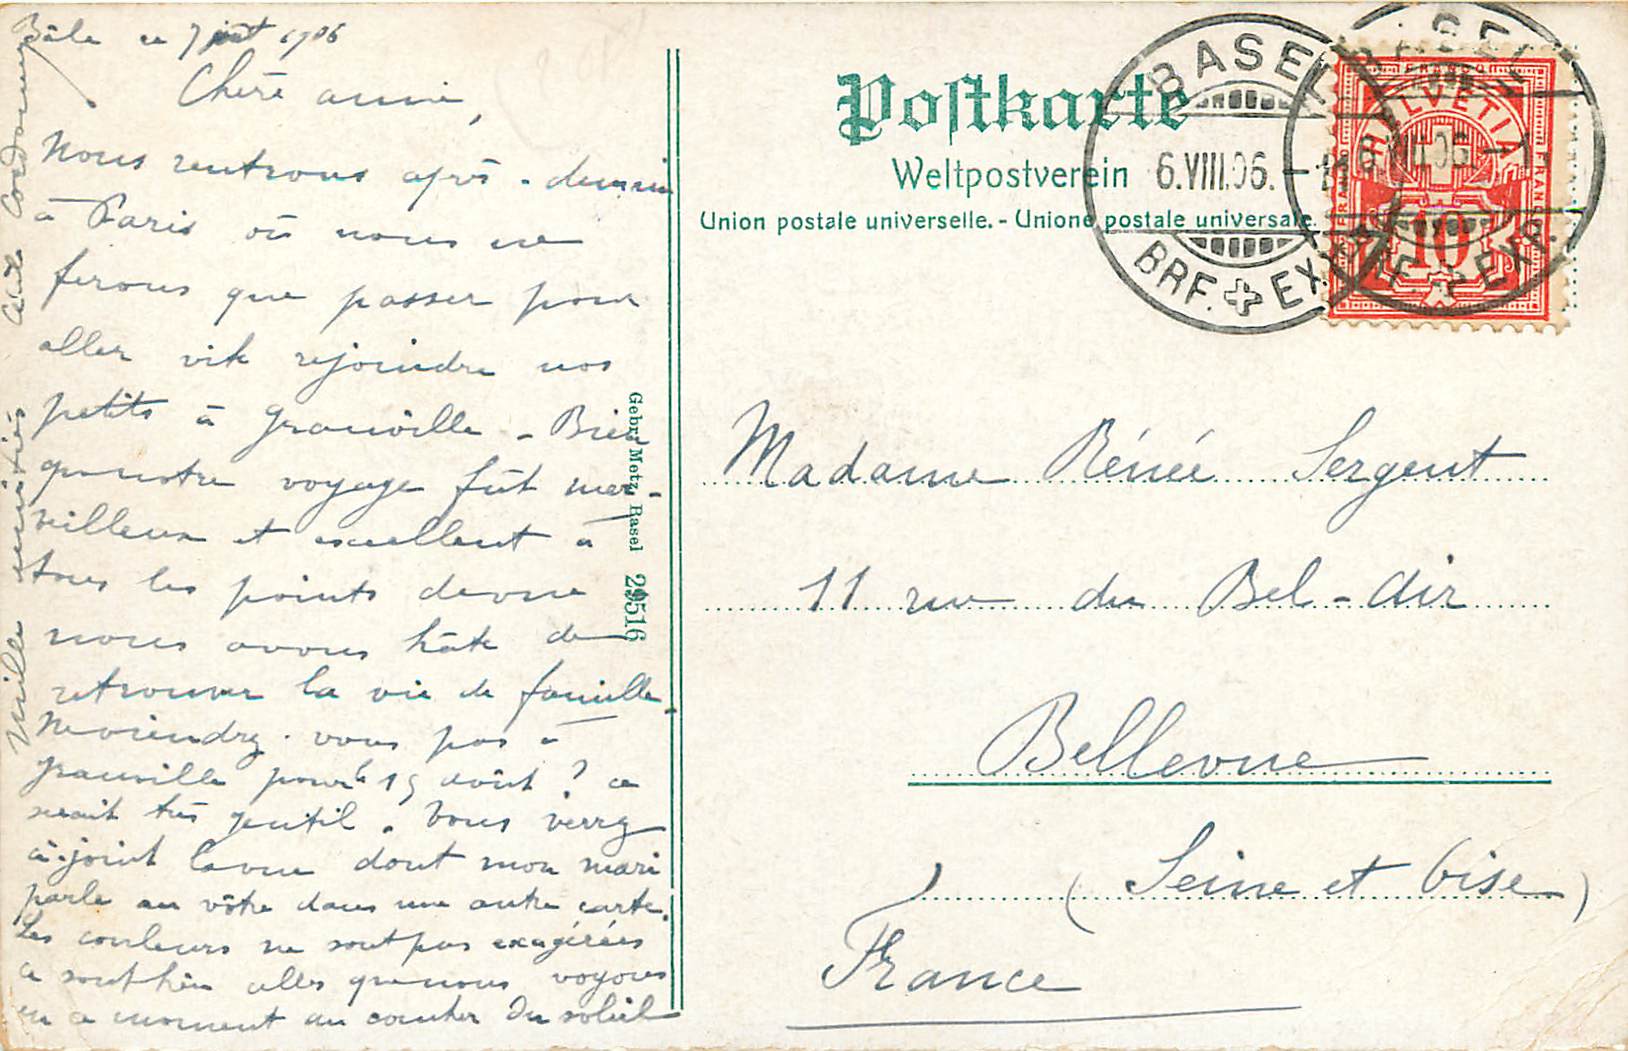 Bâle ce 7 août 1906
Chère amie,
Nous rentrons après-demain
à Paris où nous ne
ferons que passer pour
aller vite rejoindre nos
petits à Granville - Bien
que notre voyage fût mer-
veilleux et excellent à
tous les points de vue
nous avons hâte de
retrouver la vie de famille.
Ne viendrez-vous pas à
Granville pour le 15 août ? ce
serait très gentil. Vous verrez
ci-joint la vue dont mon mari
parle au vôtre dans une autre carte.
Les couleurs ne sont pas exagérées
ce sont bien celles que nous voyons
en ce moment au coucher du soleil
Mille amitiés
Gebr. Metz, Basel 29516
Postkarte
Weltpostverein
Union postale universelle. - Unione postale universale.
BASEL
6.VIII.06.
BRF. EXP.
BASEL
6.VIII.06.
BRF. EXP.
HELVETIA
FRANCO
FRANCO
10
Madame Rénée Sergent
11 rue du Bel-Air
Bellevue
(Seine et Oise)
France